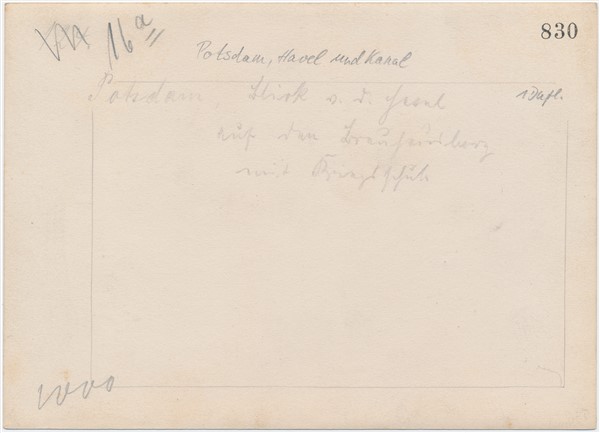 16a
830
Potsdam, Havel und Kanal
Potsdam. Blick v. d. Havel
1 Dupl.
auf den Brauhausberg
mit Kriegsschule
1000